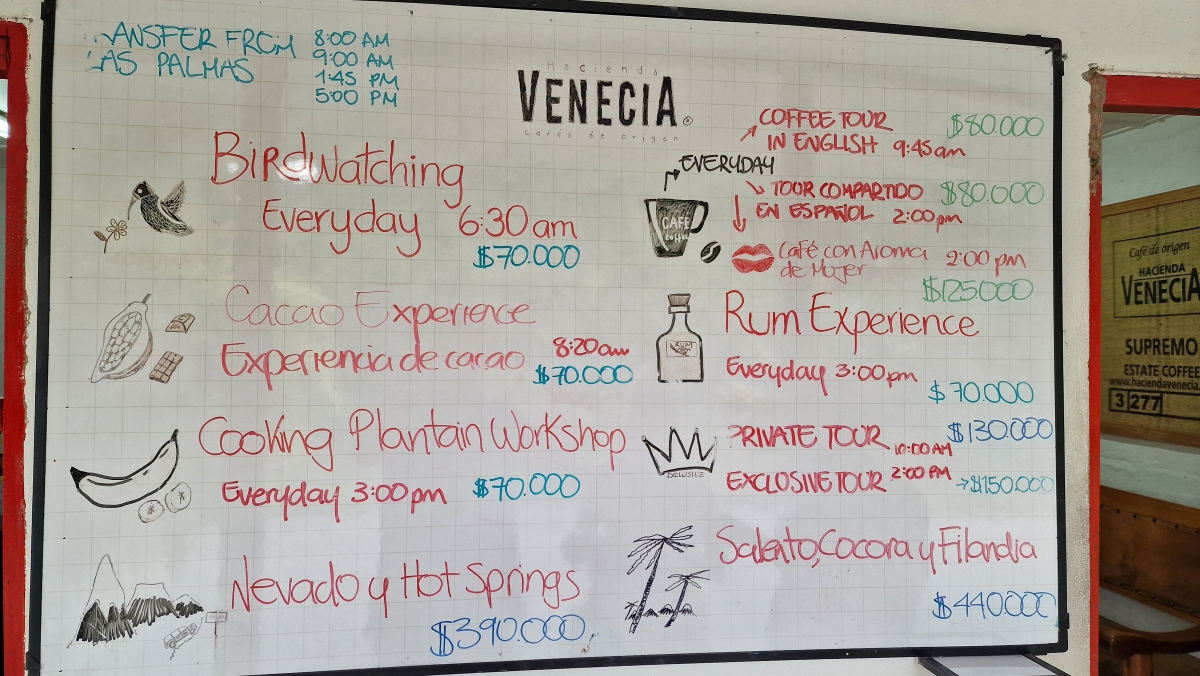 ANSFER FROM 8:00 AM
AS PALMAS 9:00 AM
1:45 PM
5:00 PM
Hacienda
VENECIA®
cafés de origen
Birdwatching
Everyday 6:30 am
$70.000
Cacao Experience
Experiencia de cacao 8:20am
$70.000
Cooking Plantain Workshop
Everyday 3:00 pm $70.000
Nevado y Hot Springs
$390.000
EVERYDAY
CAFÉ
Coffee
COFFEE TOUR $80.000
IN ENGLISH 9:45am
TOUR COMPARTIDO $80.000
EN ESPAÑOL 2:00pm
Café con Aroma 2:00 pm
de Mujer
$125.000
RUM
Rum Experience
Everyday 3:00pm
$70.000
EXCLUSIVE
PRIVATE TOUR 10:00 AM $130.000
EXCLOSIVE TOUR 2:00 PM → $150.000
Salento, Cocora y Filandia
$440.000
Café de origen
HACIENDA
VENECIA
SUPREMO
ESTATE COFFEE
www.haciendavenecia.
3 277